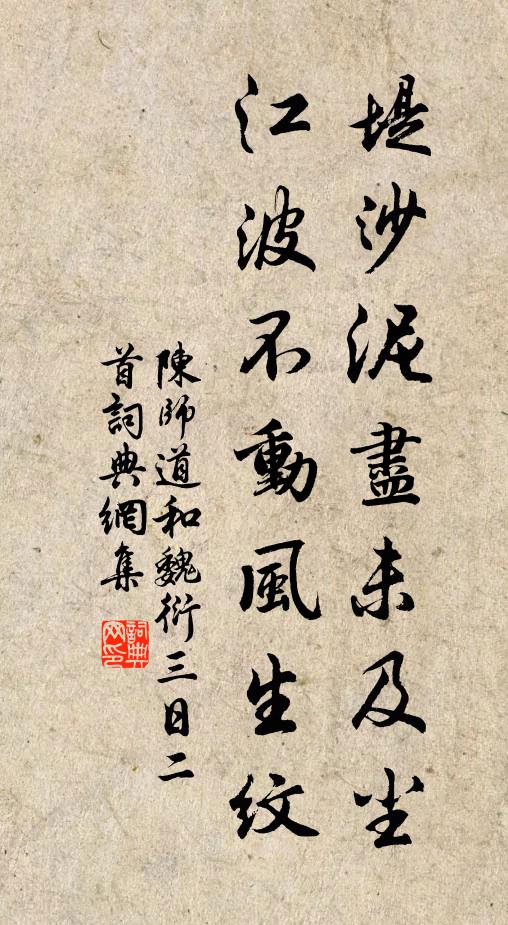 堤沙泥盡未及尘
江波不動風生紋
陳師道和魏衍三日二
首詞典網集
詞典
网印